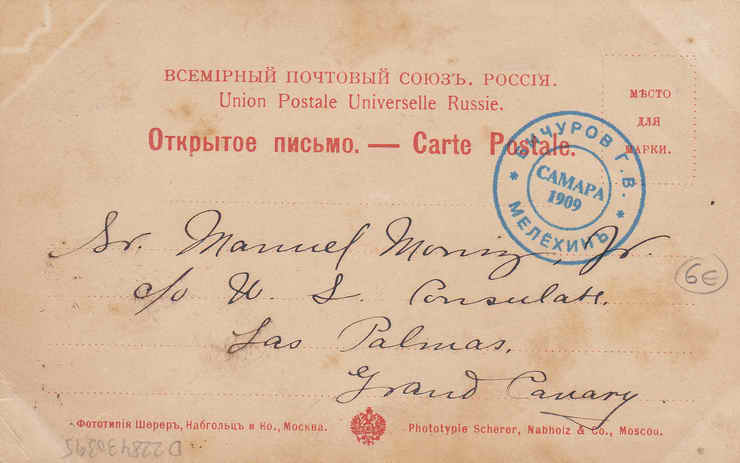 ВСЕМІРНЫЙ ПОЧТОВЫЙ СОЮЗЪ. РОССІЯ.
Union Postale Universelle Russie.
Открытое письмо. — Carte Postale.
МѢСТО
ДЛЯ
МАРКИ.
ВИЧУРОВ Г. В.
САМАРА
1909
* МЕЛЁХИНЪ *
Sr. Manuel Moniz, Jr.
c/o U. S. Consulate.
Las Palmas.
Grand Canary
6€
Фототипія Шереръ, Набгольцъ и Ко., Москва.
Phototypie Scherer, Nabholz & Co., Moscou.